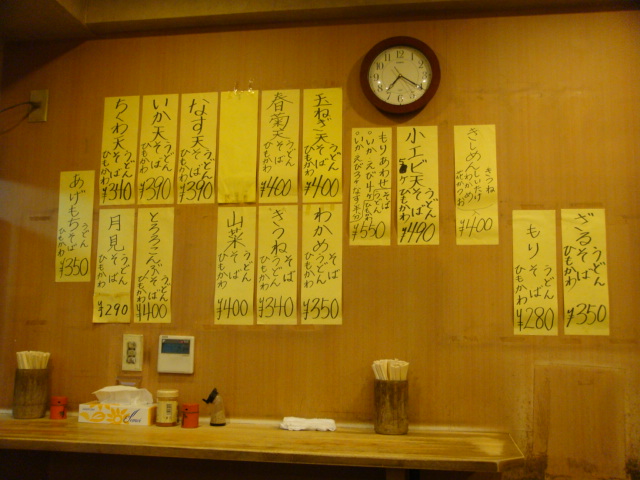 玉ねぎ天 うどん
そば
ひもかわ
¥400
春菊天 うどん
そば
ひもかわ
¥400
なす天 うどん
そば
ひもかわ
¥390
いか天 うどん
そば
ひもかわ
¥390
ちくわ天 うどん
そば
ひもかわ
¥340
もりあわせ そば
うどん
¥550
小エビ天 うどん
そば
ひもかわ
¥490
きしめん
きつね
しいたけ
わかめ
¥400
あげもち うどん
そば
¥350
わかめ そば
うどん
ひもかわ
¥350
きつね うどん
そば
ひもかわ
¥340
山菜 うどん
そば
ひもかわ
¥400
とろろこんぶ うどん
そば
ひもかわ
¥400
月見 うどん
そば
ひもかわ
¥290
ざる うどん
そば
ひもかわ
¥350
もり うどん
そば
ひもかわ
¥280